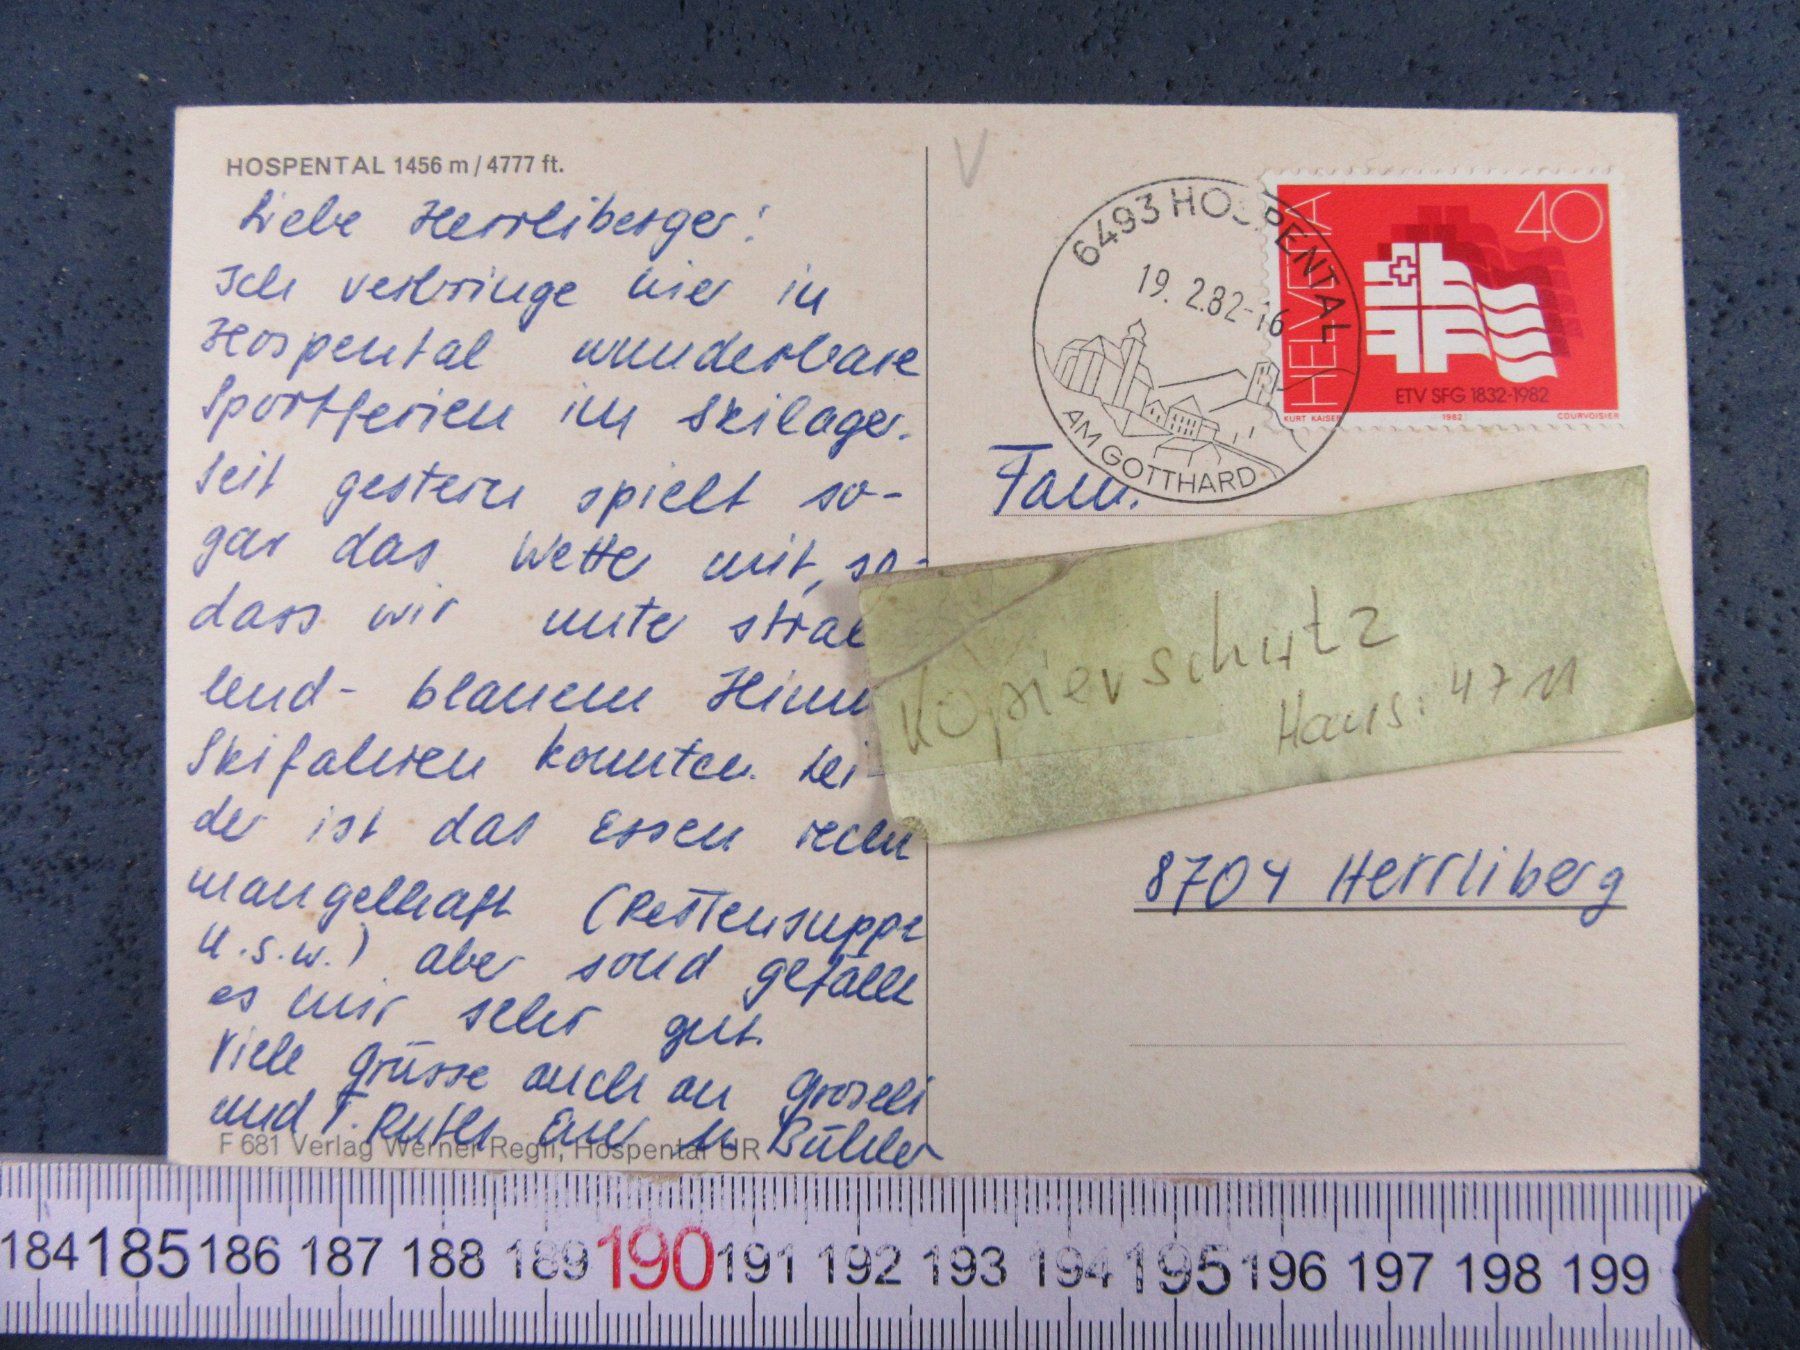 HOSPENTAL 1456 m / 4777 ft.
Liebe Herrliberger!
Ich verbringe hier in
Hospental wunderbare
Sportferien im Skilager.
Seit gestern spielt so-
gar das Wetter mit, so-
dass wir unter strah
lend-blauem Himm
Skifahren konnten. Lei
der ist das Essen recht
mangelhaft (Restensuppe
u.s.w.) aber sonst gefällt
es mir sehr gut.
Viele Grüsse auch an Groseli
und T. Ruth Euer Bühler
F 681 Verlag Werner Regli, Hospental UR
V
6493 HOSPENTAL
19.2.82-16
AM GOTTHARD
HELVETIA
40
ETV SFG 1832-1982
KURT KAISER 1982 COURVOISIER
Fam.
Kopierschutz
Haus: 4711
8704 Herrliberg
184 185 186 187 188 189 190 191 192 193 194 195 196 197 198 199